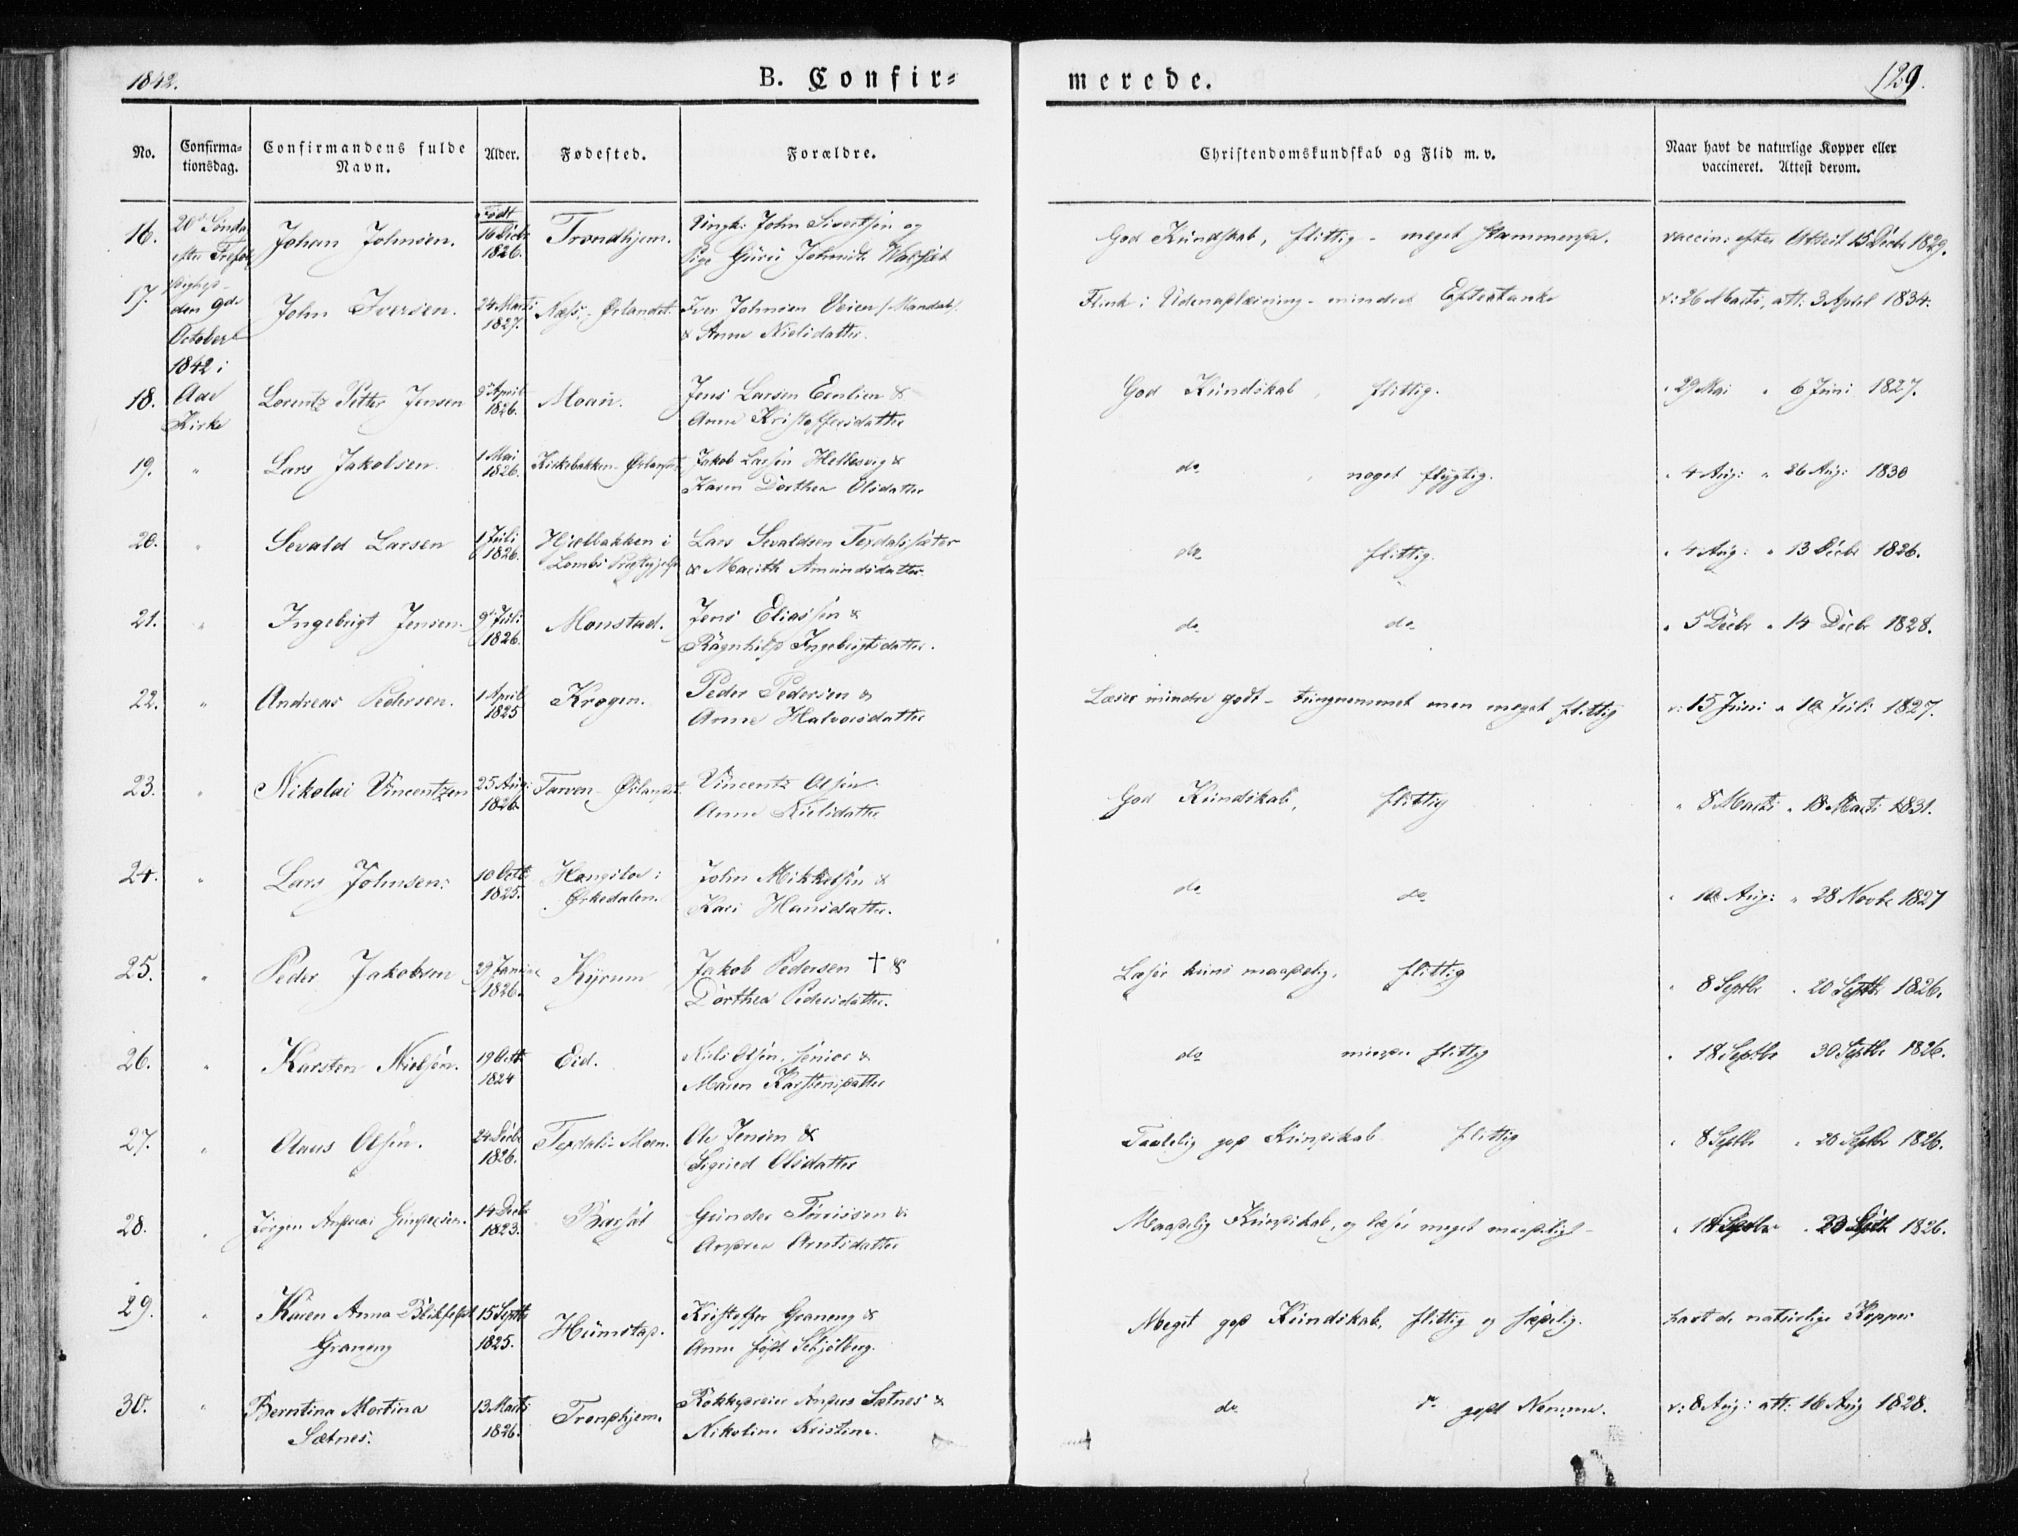 1842.
B. Confir-
merede.
129.
No.
Confirma-
tionsdag.
Confirmandens fulde
Navn.
Alder.
Fødested.
Forældre.
Christendomskundskab og Flid m. v.
Naar havt de naturlige Kopper eller
vaccineret. Attest derom.
16.
20de Sønda
efter Trefol
Johan Johnsen.
Født
16 Decbr
1826.
Trondhjem.
Ungk: John Sivertsen og
Pige Guru Johnsdt
God Kundskab, flittig - meget
vaccin: efter Attest 15 Decbr 1829.
17.
den 9de
October
1842 i
John Iversen.
24 Marts
1827.
Næs i Ørlandet.
Iver Johnsen Veien
& Anne Nielsdatter
Flink i Udenadlæsning - mindre Eftertanke
v: 26 Marts, att: 3 April 1834.
18.
Aae
Kirke
Lorentz Petter Jensen
2 April
1826.
Moan.
Jens Larsen Eenlien &
Anne Kristoffersdatter
God Kundskab, flittig.
" 29 Mai " 6 Juni 1827.
19.
"
Lars Jakobsen.
1 Mai
1826.
Kirkebakken Ørlandet
Jakob Larsen Hellesvig &
Karen Dorthea Olsdatter
do , noget flygtig.
" 4 Aug: " 26 Aug: 1830
20.
"
Sevald Larsen
1 Juli
1826.
Hielbakken i
Loms Præstegjeld
Lars Sevaldsen Texdalssæter
& Marith Amundsdatter
do flittig.
" 4 Aug: " 13 Decbr 1826.
21.
"
Ingebrigt Jensen
9 Juli
1826.
Monstad.
Jens Eliassen &
Ragnhild Ingebrigtsdatter.
do do
" 5 Decbr " 14 Decbr 1828.
22.
"
Andreas Pedersen.
1 April
1825
Krogen.
Peder Pedersen &
Anne Halvorsdatter
Læser mindre godt - tungnemmet men meget flittig
v: 15 Juni " 10 Juli 1827.
23.
"
Nikolai Vincentzen
25 Aug:
1826.
Tarven - Ørlandet
Vincentz Olsen
Anne Nielsdatter
God Kundskab, flittig
" 8 Marts " 18 Marts 1831.
24.
"
Lars Johnsen.
10 Octb
1825.
Hongslo i
Ørkedalen.
John Mikkelsen &
Kari Hansdatter.
do do
" 10 Aug: " 28 Novbr 1827
25.
"
Peder Jakobsen
29 Januar
1826.
Kyrum
Jakob Pedersen † &
Dorthea Pedersdatter.
Læser kuns maadelig, flittig
" 8 Septbr " 20 Septbr 1826.
26.
"
Karsten Nielsen.
19 Octb
1824
Eid.
Niels Olsen, senior &
Maren Karstensdatter
do mindre flittig
" 18 Septbr 30 Septbr 1826.
27.
"
Claus Olsen.
24 Decbr
1826.
Texdals-Moen.
Ole Jensen &
Sigried Olsdatter
Taalelig god Kundskab flittig
" 8 Septbr " 20 Septbr 1826.
28.
"
Jørgen Andreas Gundersen.
14 Decbr
1823.
Barset
Gunder Tørrissen &
Andrea Arntsdatter
Maadelig Kundskab, og læser meget maadeligt -
" 18 Septbr " 23 Septb 1826.
29.
"
Karen Anna
Graneng
15 Septbr
1825.
Humstad.
Kristoffer Graneng &
Anne født Schjølberg.
Meget god Kundskab, flittig og sædelig.
havt de naturlige Kopper
30.
"
Berntina Martina
Sætnes.
13 Marts
1826.
Trondhjem.
Anders Sætnes &
Nikoline Kristine.
do do godt Nemme.
v: 8 Aug: att: 16 Aug 1828.